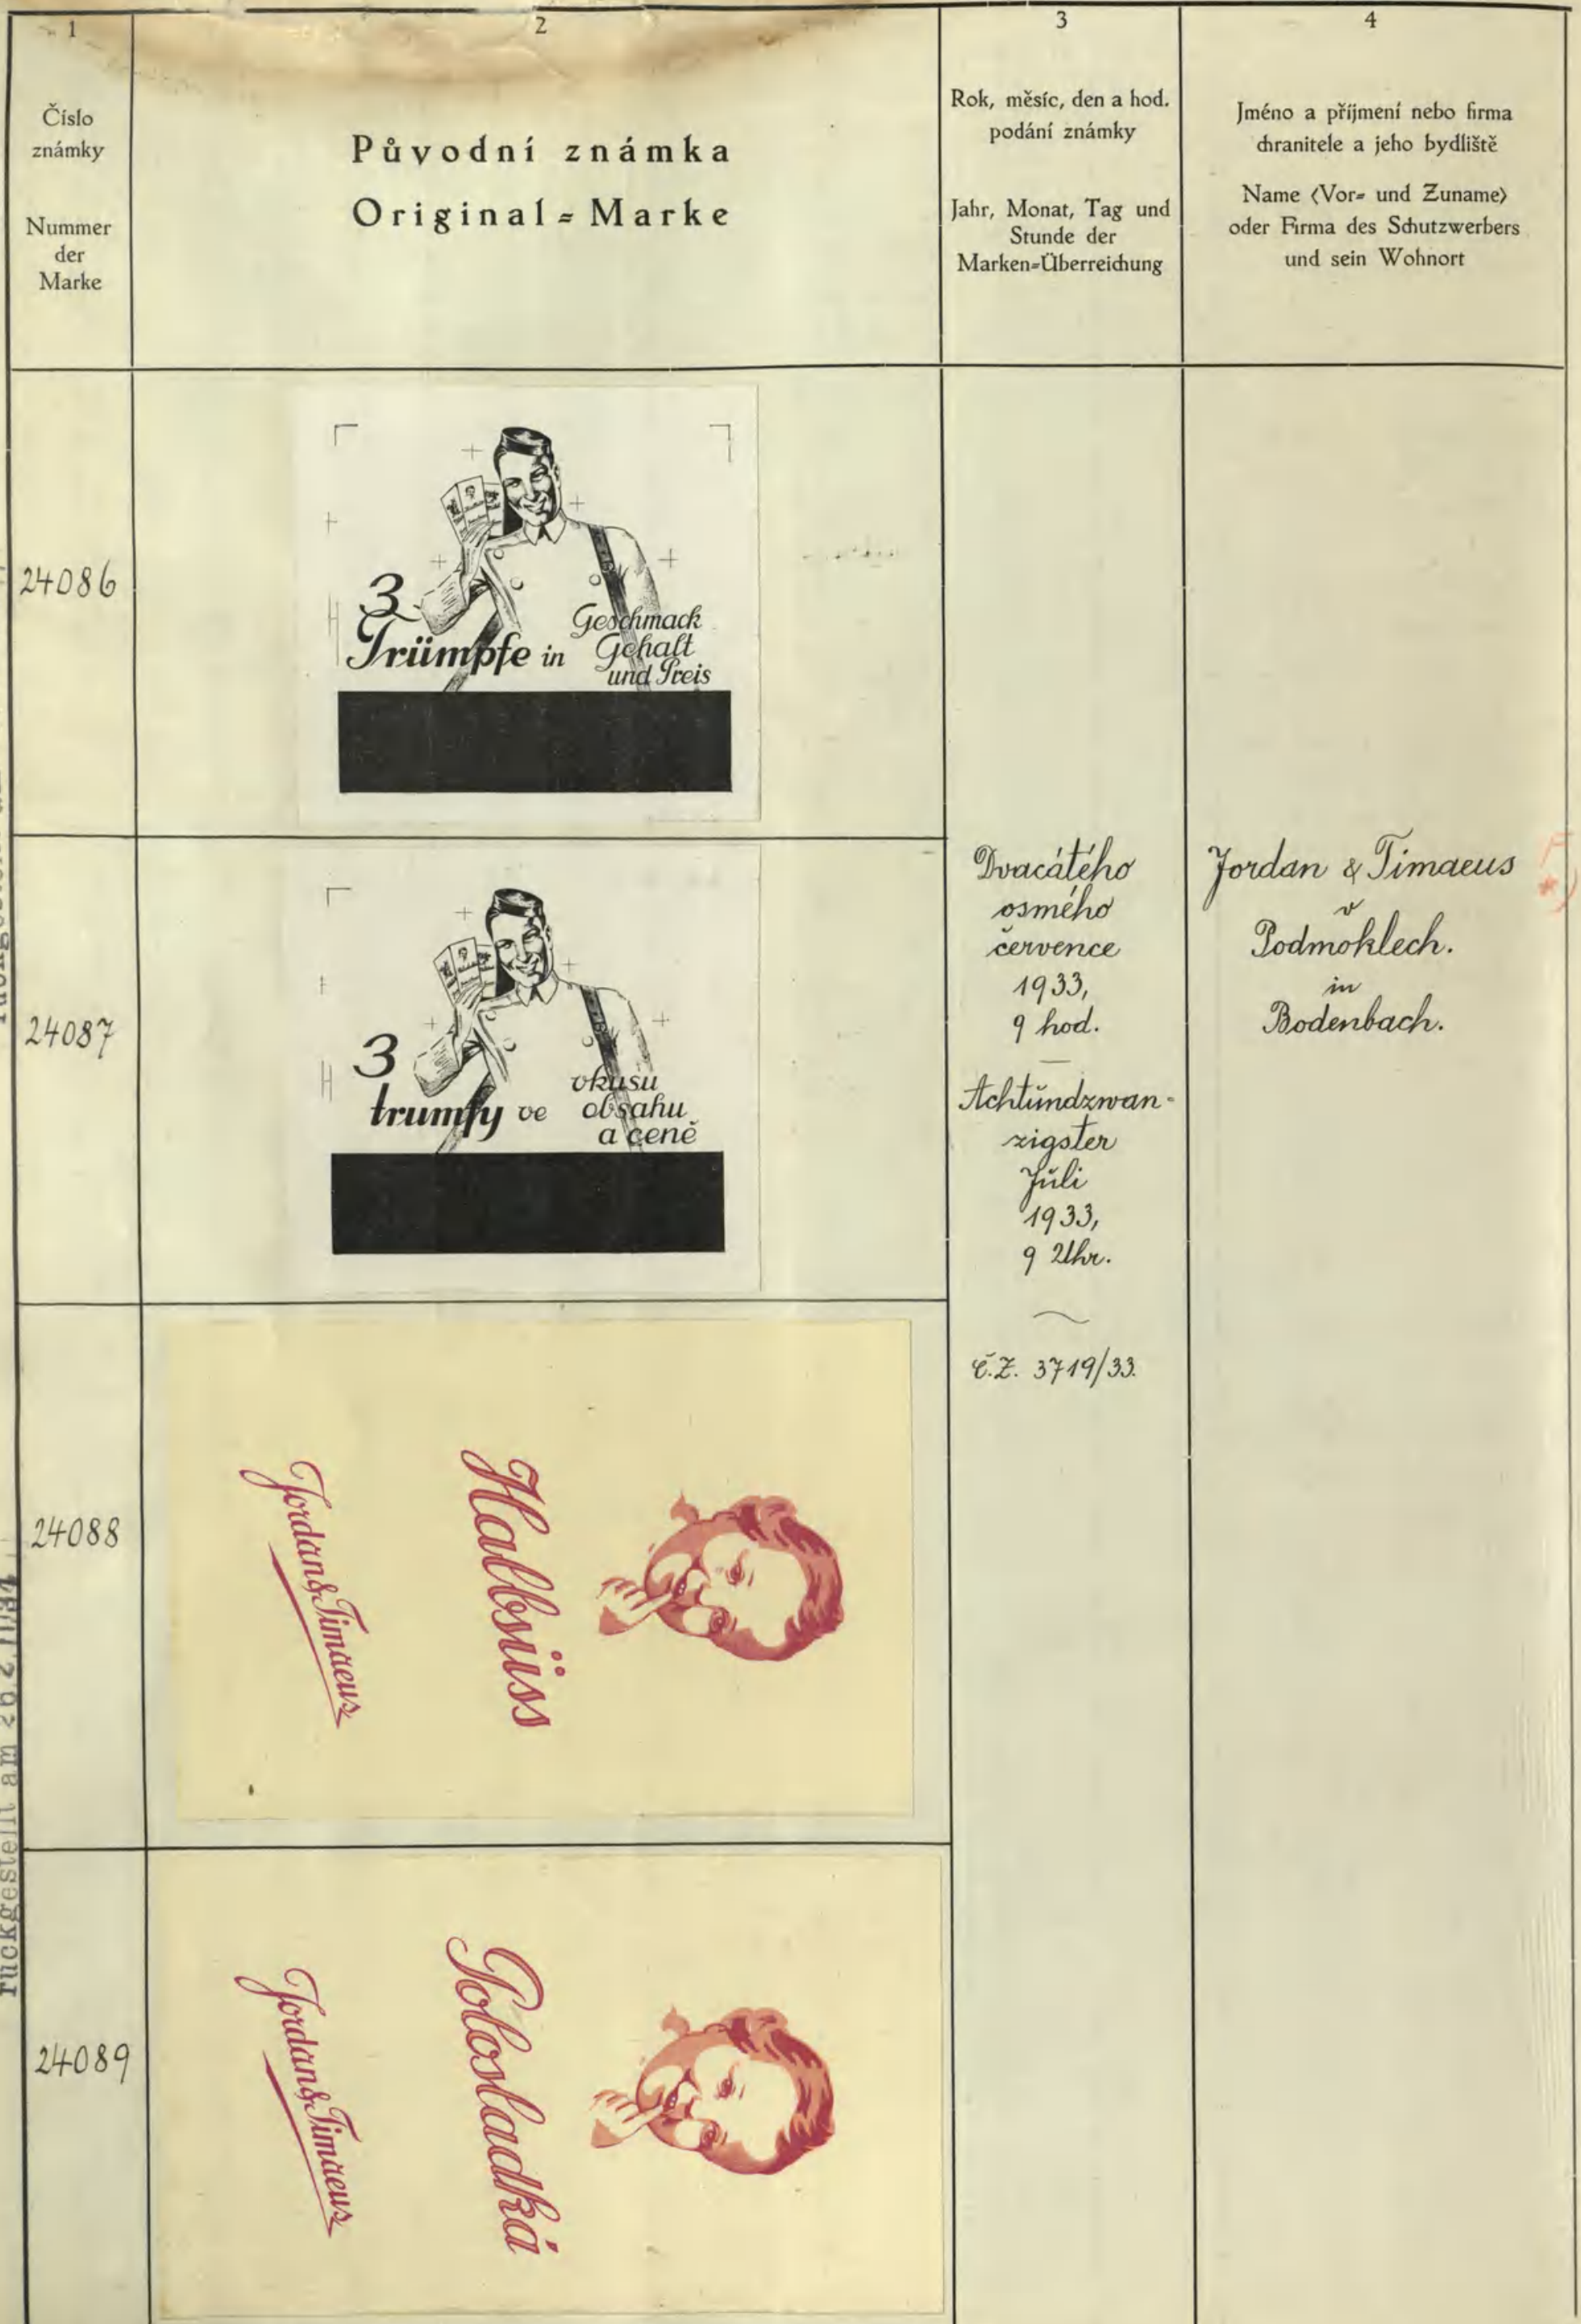 1
2
3
4
Číslo
známky
Nummer
der
Marke
Původní známka
Original=Marke
Rok, měsíc, den a hod.
podání známky
Jahr, Monat, Tag und
Stunde der
Marken=Überreichung
Jméno a příjmení nebo firma
chranitele a jeho bydliště
Name (Vor= und Zuname)
oder Firma des Schutzwerbers
und sein Wohnort
24086
3
Trümpfe in
Geschmack
Gehalt
und Preis
24087
3
trumfy ve
vkusu
obsahu
a ceně
Dvacátého
osmého
července
1933,
9 hod.
Achtundzwan-
zigster
Juli
1933,
9 Uhr.
č.Z. 3719/33.
Jordan & Timaeus
v
Podmoklech.
in
Bodenbach.
24088
Halbsüss
Jordan & Timaeus
24089
Polosladká
Jordan & Timaeus
rückgestellt am 26.2.